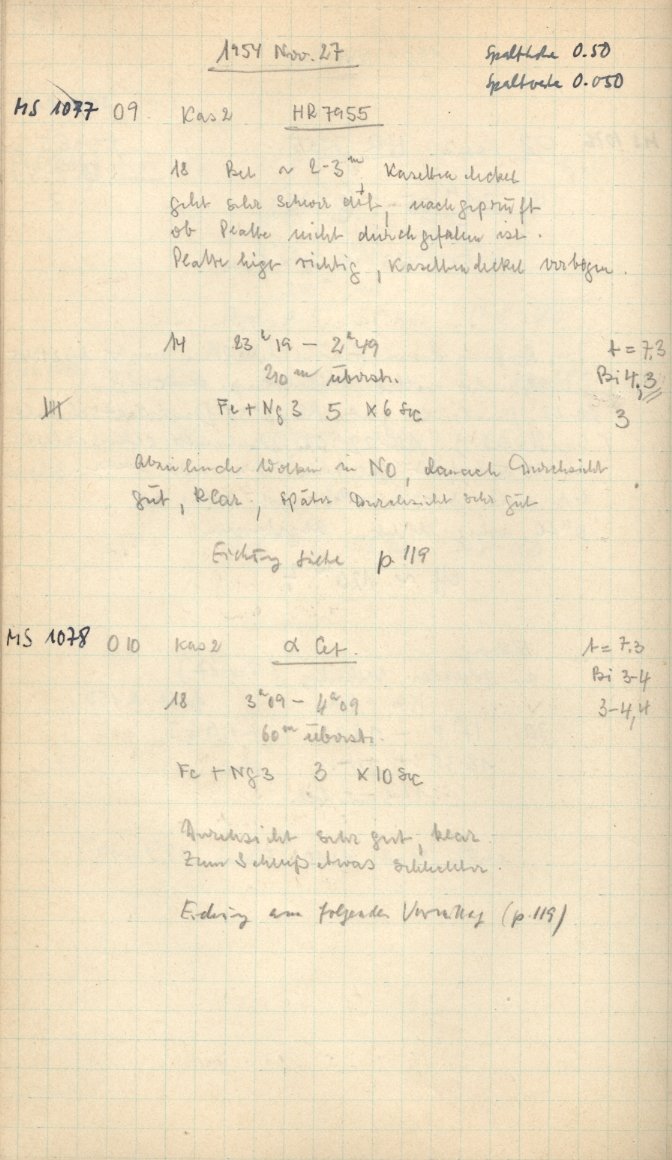 1954 Nov. 27
Spalthöhe 0.50
Spaltweite 0.050
MS 1077 09 Kas 2 HR 7955
18 Bel ~ 2-3m Kasettendeckel
geht sehr schwer auf, nachgeprüft
ob Platte nicht durchgefallen ist.
Platte liegt richtig, Kasettendeckel verbogen.
14 23h19 – 2h49 t = 7.3
210m überstr. Bi 4,3
Fe + Ng 3 5 x 6 Sec 3
Wolken in NO, danach Durchsicht
gut, klar, später Durchsicht sehr gut
Eichung siehe p 119
MS 1078 010 Kas 2 α Cet. t = 7.3
Bi 3-4
18 3h09 – 4h09 3-4,4
60m überstr.
Fe + Ng 3 3 x 10 Sec
Durchsicht sehr gut, klar
Zum Schluß etwas schlechter.
Eichung am folgenden Vormittag (p. 119)